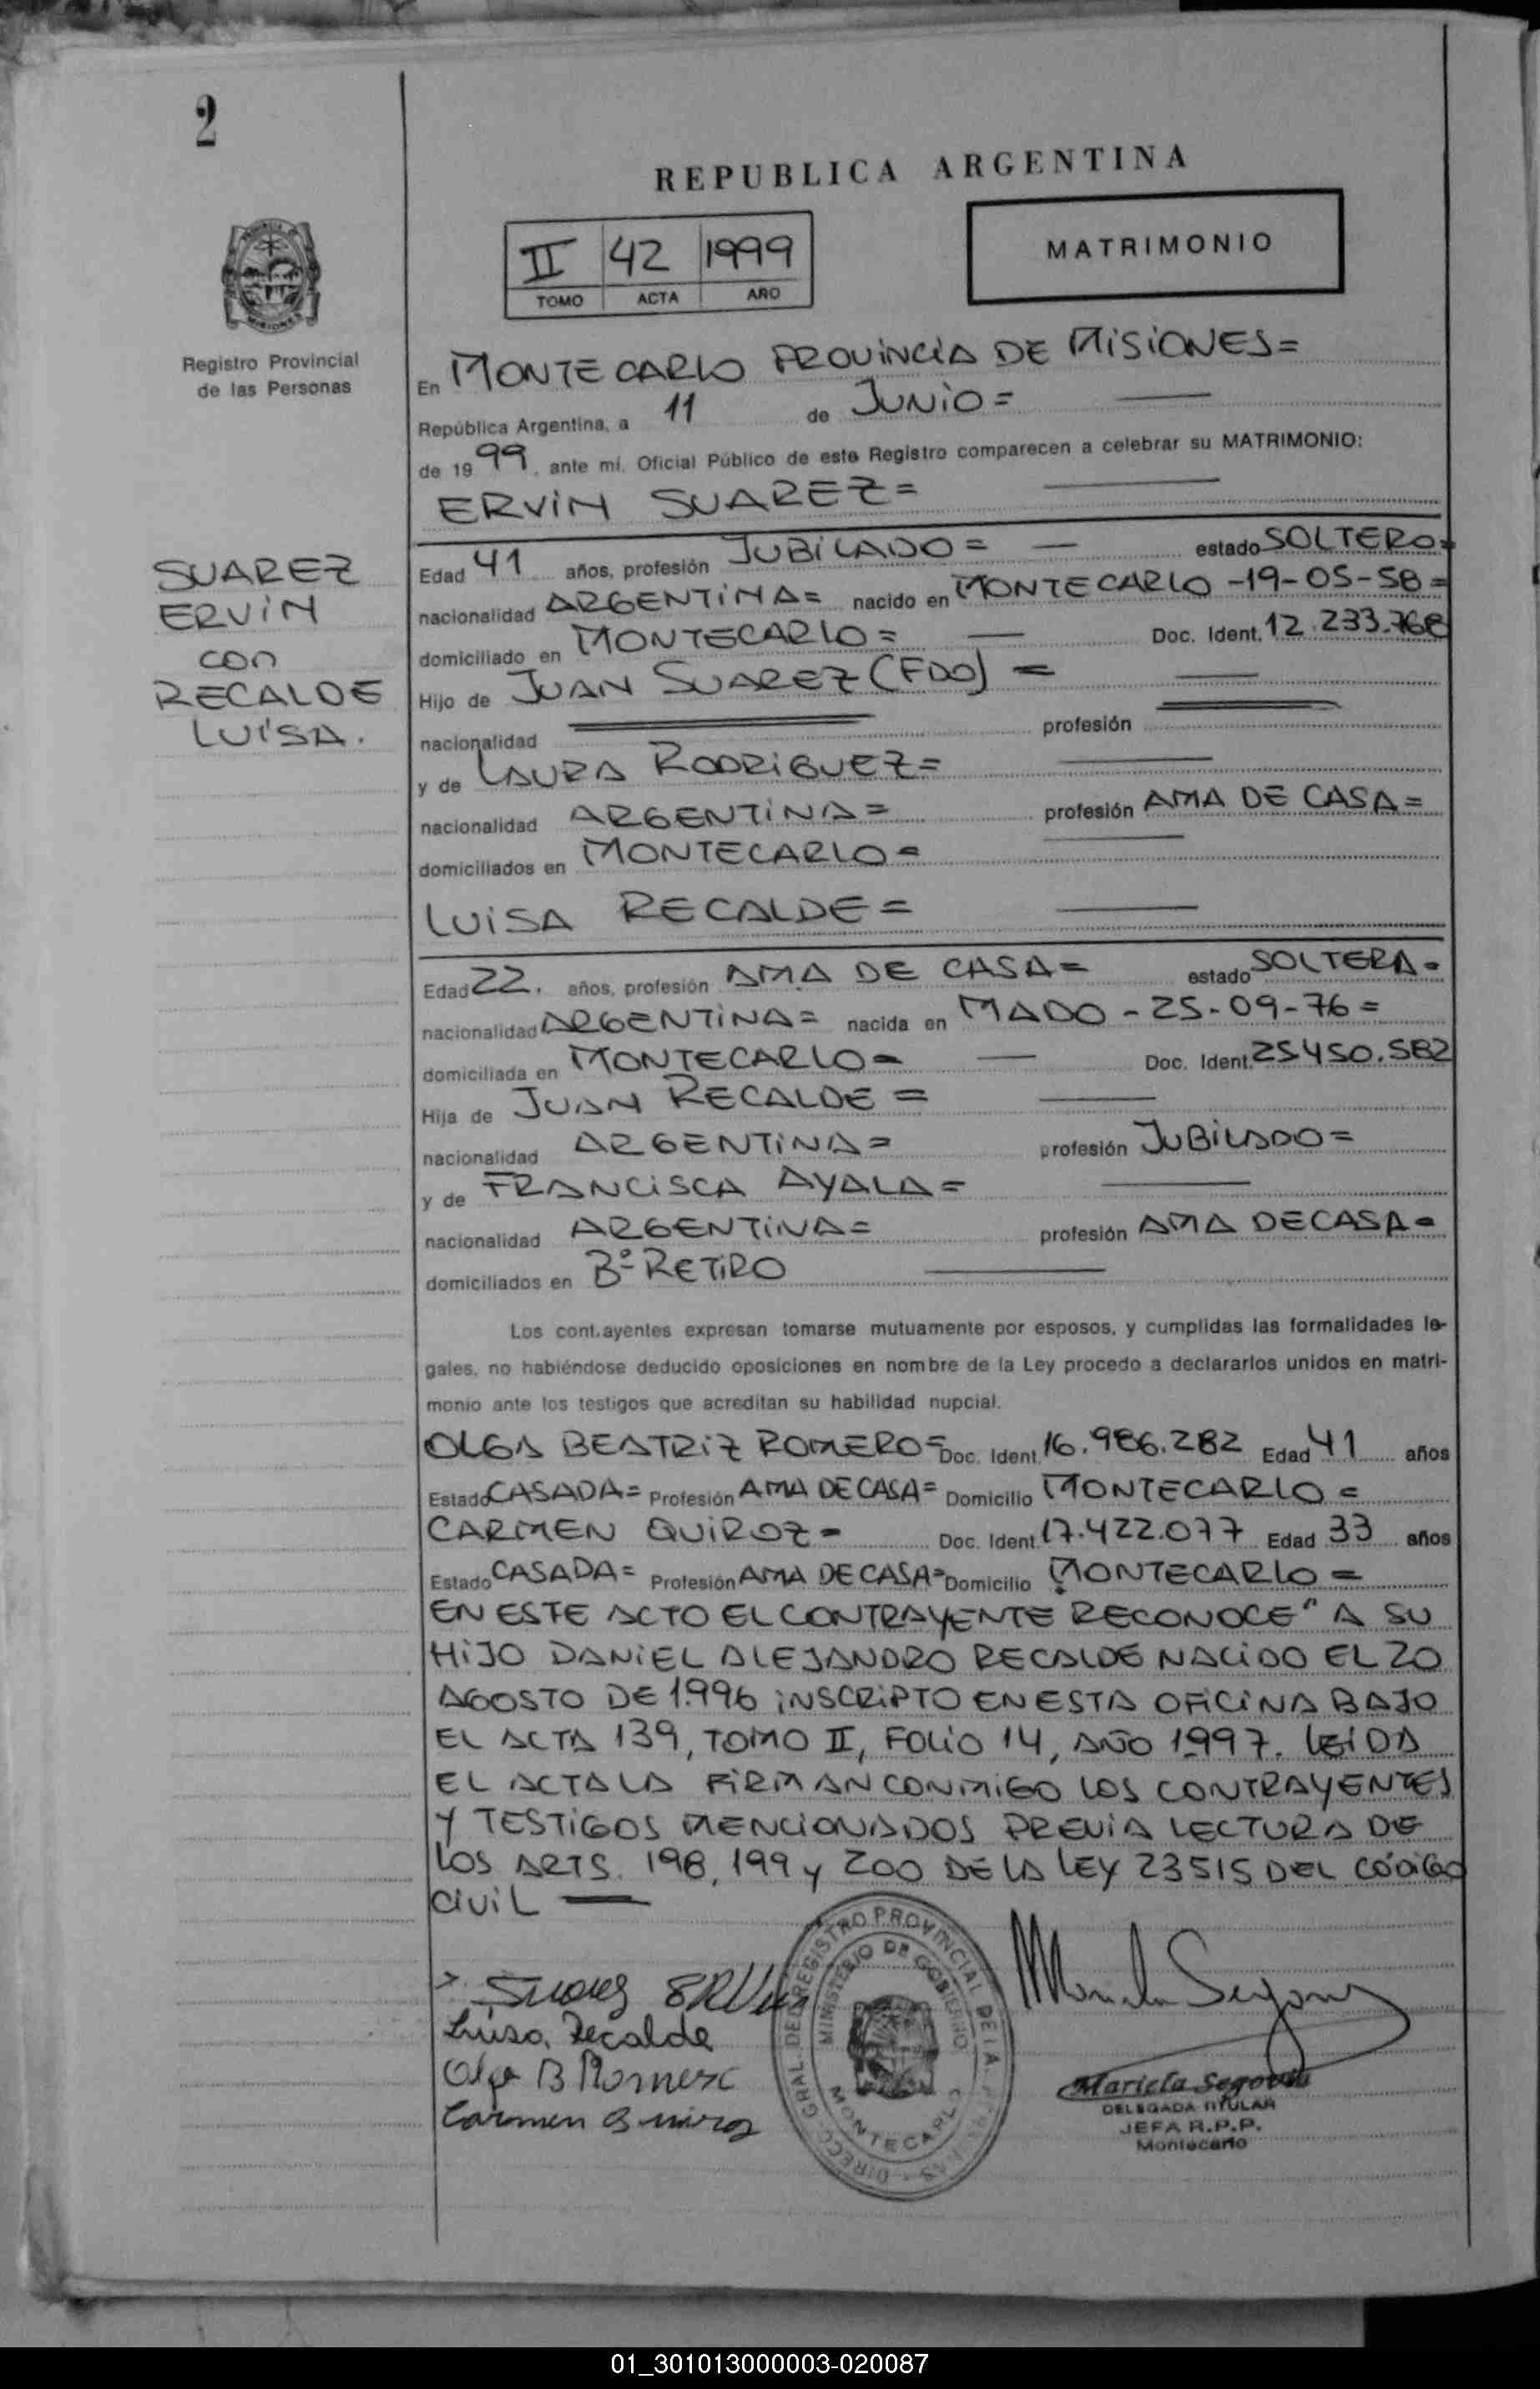 2
REPUBLICA ARGENTINA
II 42 1999
TOMO ACTA AÑO
MATRIMONIO
MISIONES
Registro Provincial
de las Personas
En MONTECARLO PROVINCIA DE MISIONES=
República Argentina, a 11 de JUNIO=
de 1999, ante mí, Oficial Público de este Registro comparecen a celebrar su MATRIMONIO:
ERVIN SUAREZ=
SUAREZ
ERVIN
con
RECALDE
LUISA.
Edad 41 años, profesión JUBILADO= estado SOLTERO=
nacionalidad ARGENTINA= nacido en MONTECARLO -19-05-58=
domiciliado en MONTECARLO= Doc. Ident. 12.233.768
Hijo de JUAN SUAREZ (FDO) =
nacionalidad profesión
y de LAURA RODRIGUEZ=
nacionalidad ARGENTINA= profesión AMA DE CASA=
domiciliados en MONTECARLO=
LUISA RECALDE=
Edad 22. años, profesión AMA DE CASA= estado SOLTERA=
nacionalidad ARGENTINA= nacida en MADO - 25-09-76=
domiciliada en MONTECARLO= Doc. Ident. 25450.582
Hija de JUAN RECALDE =
nacionalidad ARGENTINA= profesión JUBILADO=
y de FRANCISCA AYALA=
nacionalidad ARGENTINA= profesión AMA DE CASA=
domiciliados en Bº RETIRO
Los cont.ayentes expresan tomarse mutuamente por esposos, y cumplidas las formalidades le-
gales, no habiéndose deducido oposiciones en nombre de la Ley procedo a declararlos unidos en matri-
monio ante los testigos que acreditan su habilidad nupcial.
OLGA BEATRIZ ROMERO= Doc. Ident. 16.986.282 Edad 41 años
Estado CASADA= Profesión AMA DE CASA= Domicilio MONTECARLO=
CARMEN QUIROZ= Doc. Ident. 17.422.077 Edad 33 años
Estado CASADA= Profesión AMA DE CASA= Domicilio MONTECARLO=
EN ESTE ACTO EL CONTRAYENTE RECONOCE" A SU
HIJO DANIEL ALEJANDRO RECALDE NACIDO EL 20
AGOSTO DE 1.996 INSCRIPTO EN ESTA OFICINA BAJO
EL ACTA 139, TOMO II, FOLIO 14, AÑO 1997. LEIDA
EL ACTA LA FIRMAN CONMIGO LOS CONTRAYENTES
Y TESTIGOS MENCIONADOS PREVIA LECTURA DE
LOS ARTS. 198, 199 y 200 DE LA LEY 23515 DEL CÓDIGO
CIVIL
Suarez ERVin
Luisa Recalde
Olga B Romero
Carmen Quiroz
DIRECC. GRAL. DEL REGISTRO PROVINCIAL DE LA
MINISTERIO DE GOBIERNO
MONTECARLO
Mariela Segovia
Mariela Segovia
DELEGADA TITULAR
JEFA R.P.P.
Montecarlo
01_301013000003-020087